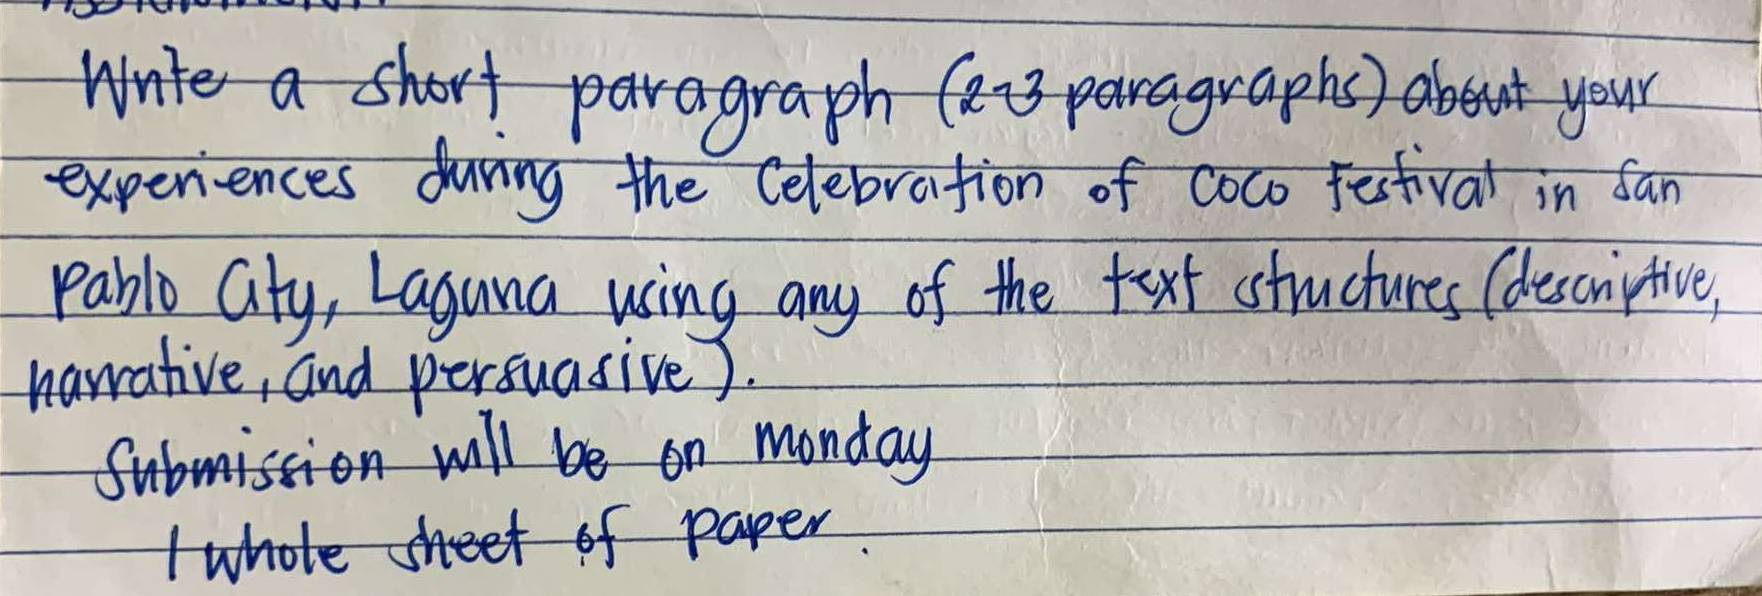 Write a short paragraph (2-3 paragraphs) about your
experiences during the Celebration of Coco Festival in San
Pablo City, Laguna using any of the text structures (descriptive,
narrative, and persuasive).
Submission will be on monday
1 whole sheet of paper.